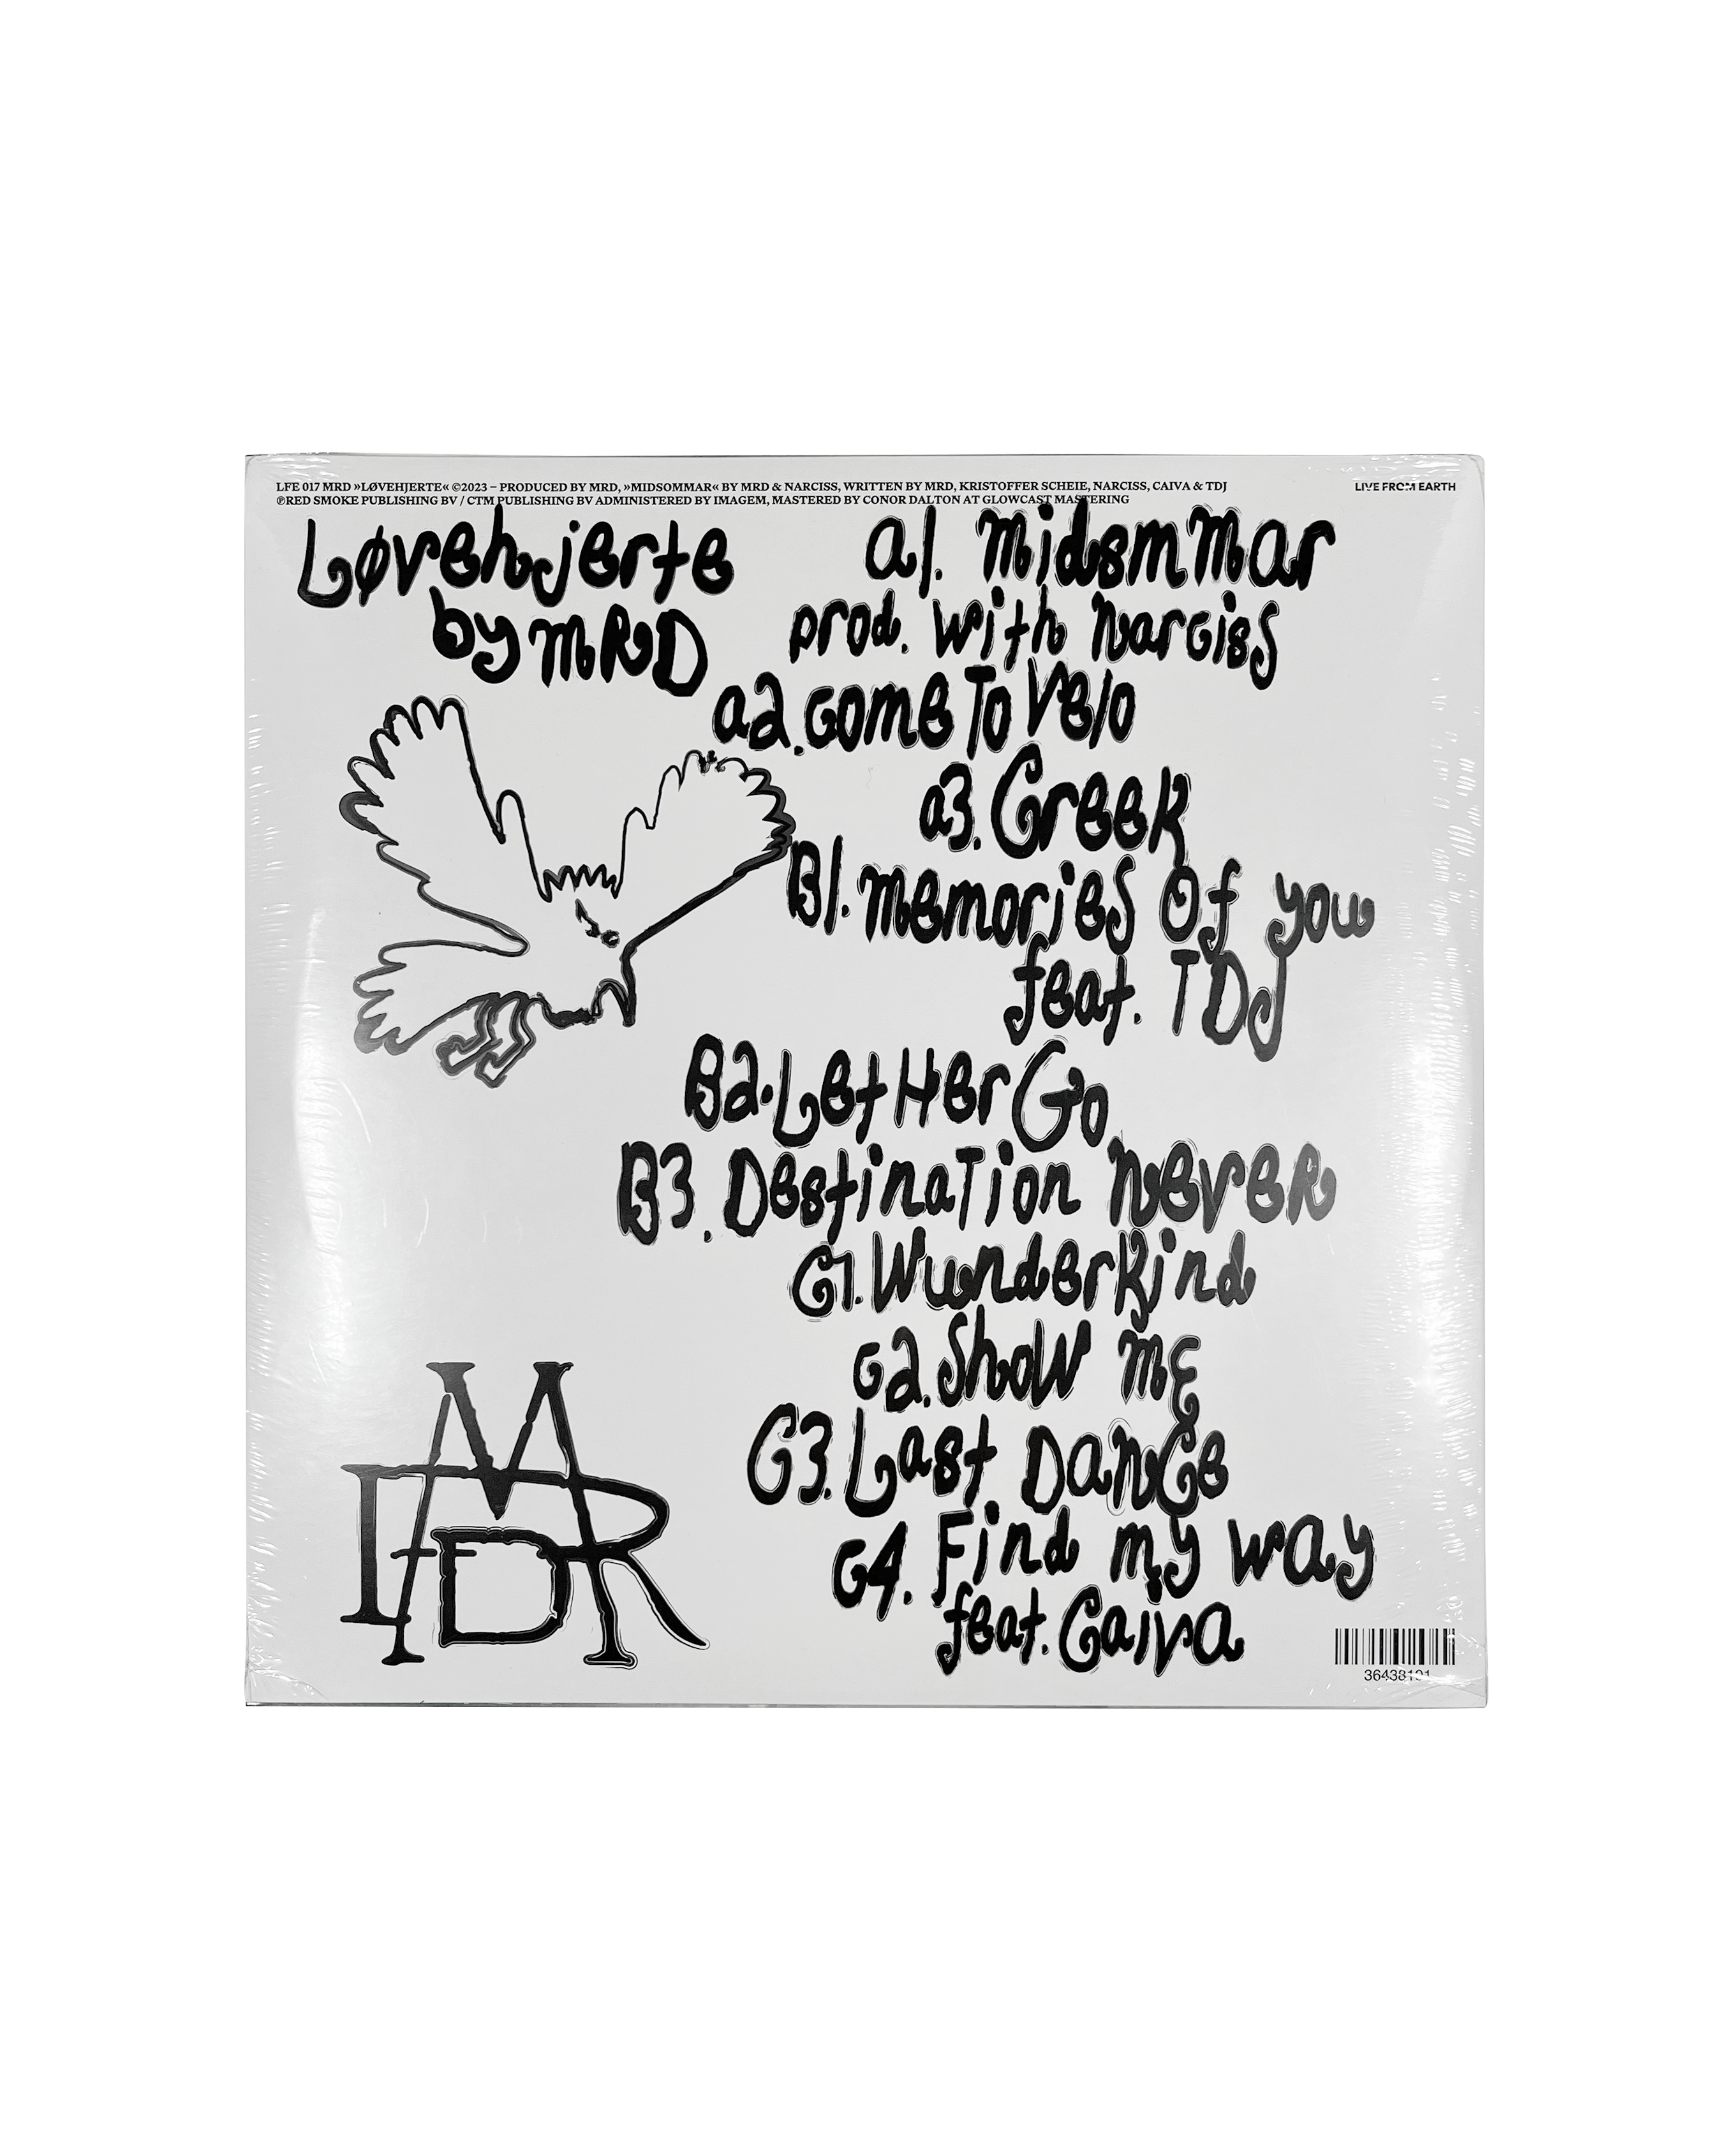 LFE 017 MRD »LØVEHJERTE« ©2023 – PRODUCED BY MRD, »MIDSOMMAR« BY MRD & NARCISS, WRITTEN BY MRD, KRISTOFFER SCHEIE, NARCISS, CAIVA & TDJ
℗RED SMOKE PUBLISHING BV / CTM PUBLISHING BV ADMINISTERED BY IMAGEM, MASTERED BY CONOR DALTON AT GLOWCAST MASTERING
LIVE FROM EARTH
Løvehjerte
by MRD
a1. midsmmar
prod. with narciss
a2. come To Velo
a3. Creek
B1. memories Of you
feat. TDJ
B2. Let Her Go
B3. DestinaTion never
C1. Wunderkind
C2. Show me
C3. Last Dance
C4. Find my way
feat. Caiva
MRD
36438101